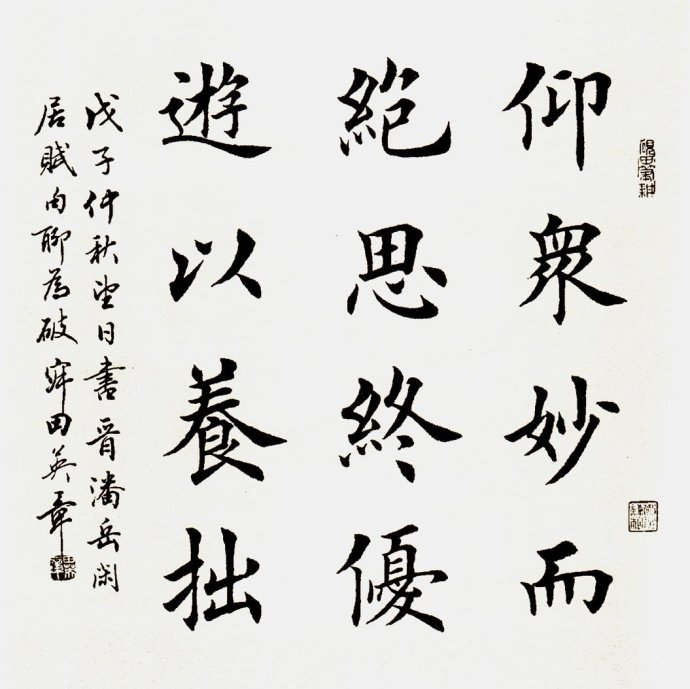 仰衆妙而
絕思終優
遊以養拙
戊子仲秋望日書晉潘岳閑
居賦句聊為破寐田英章